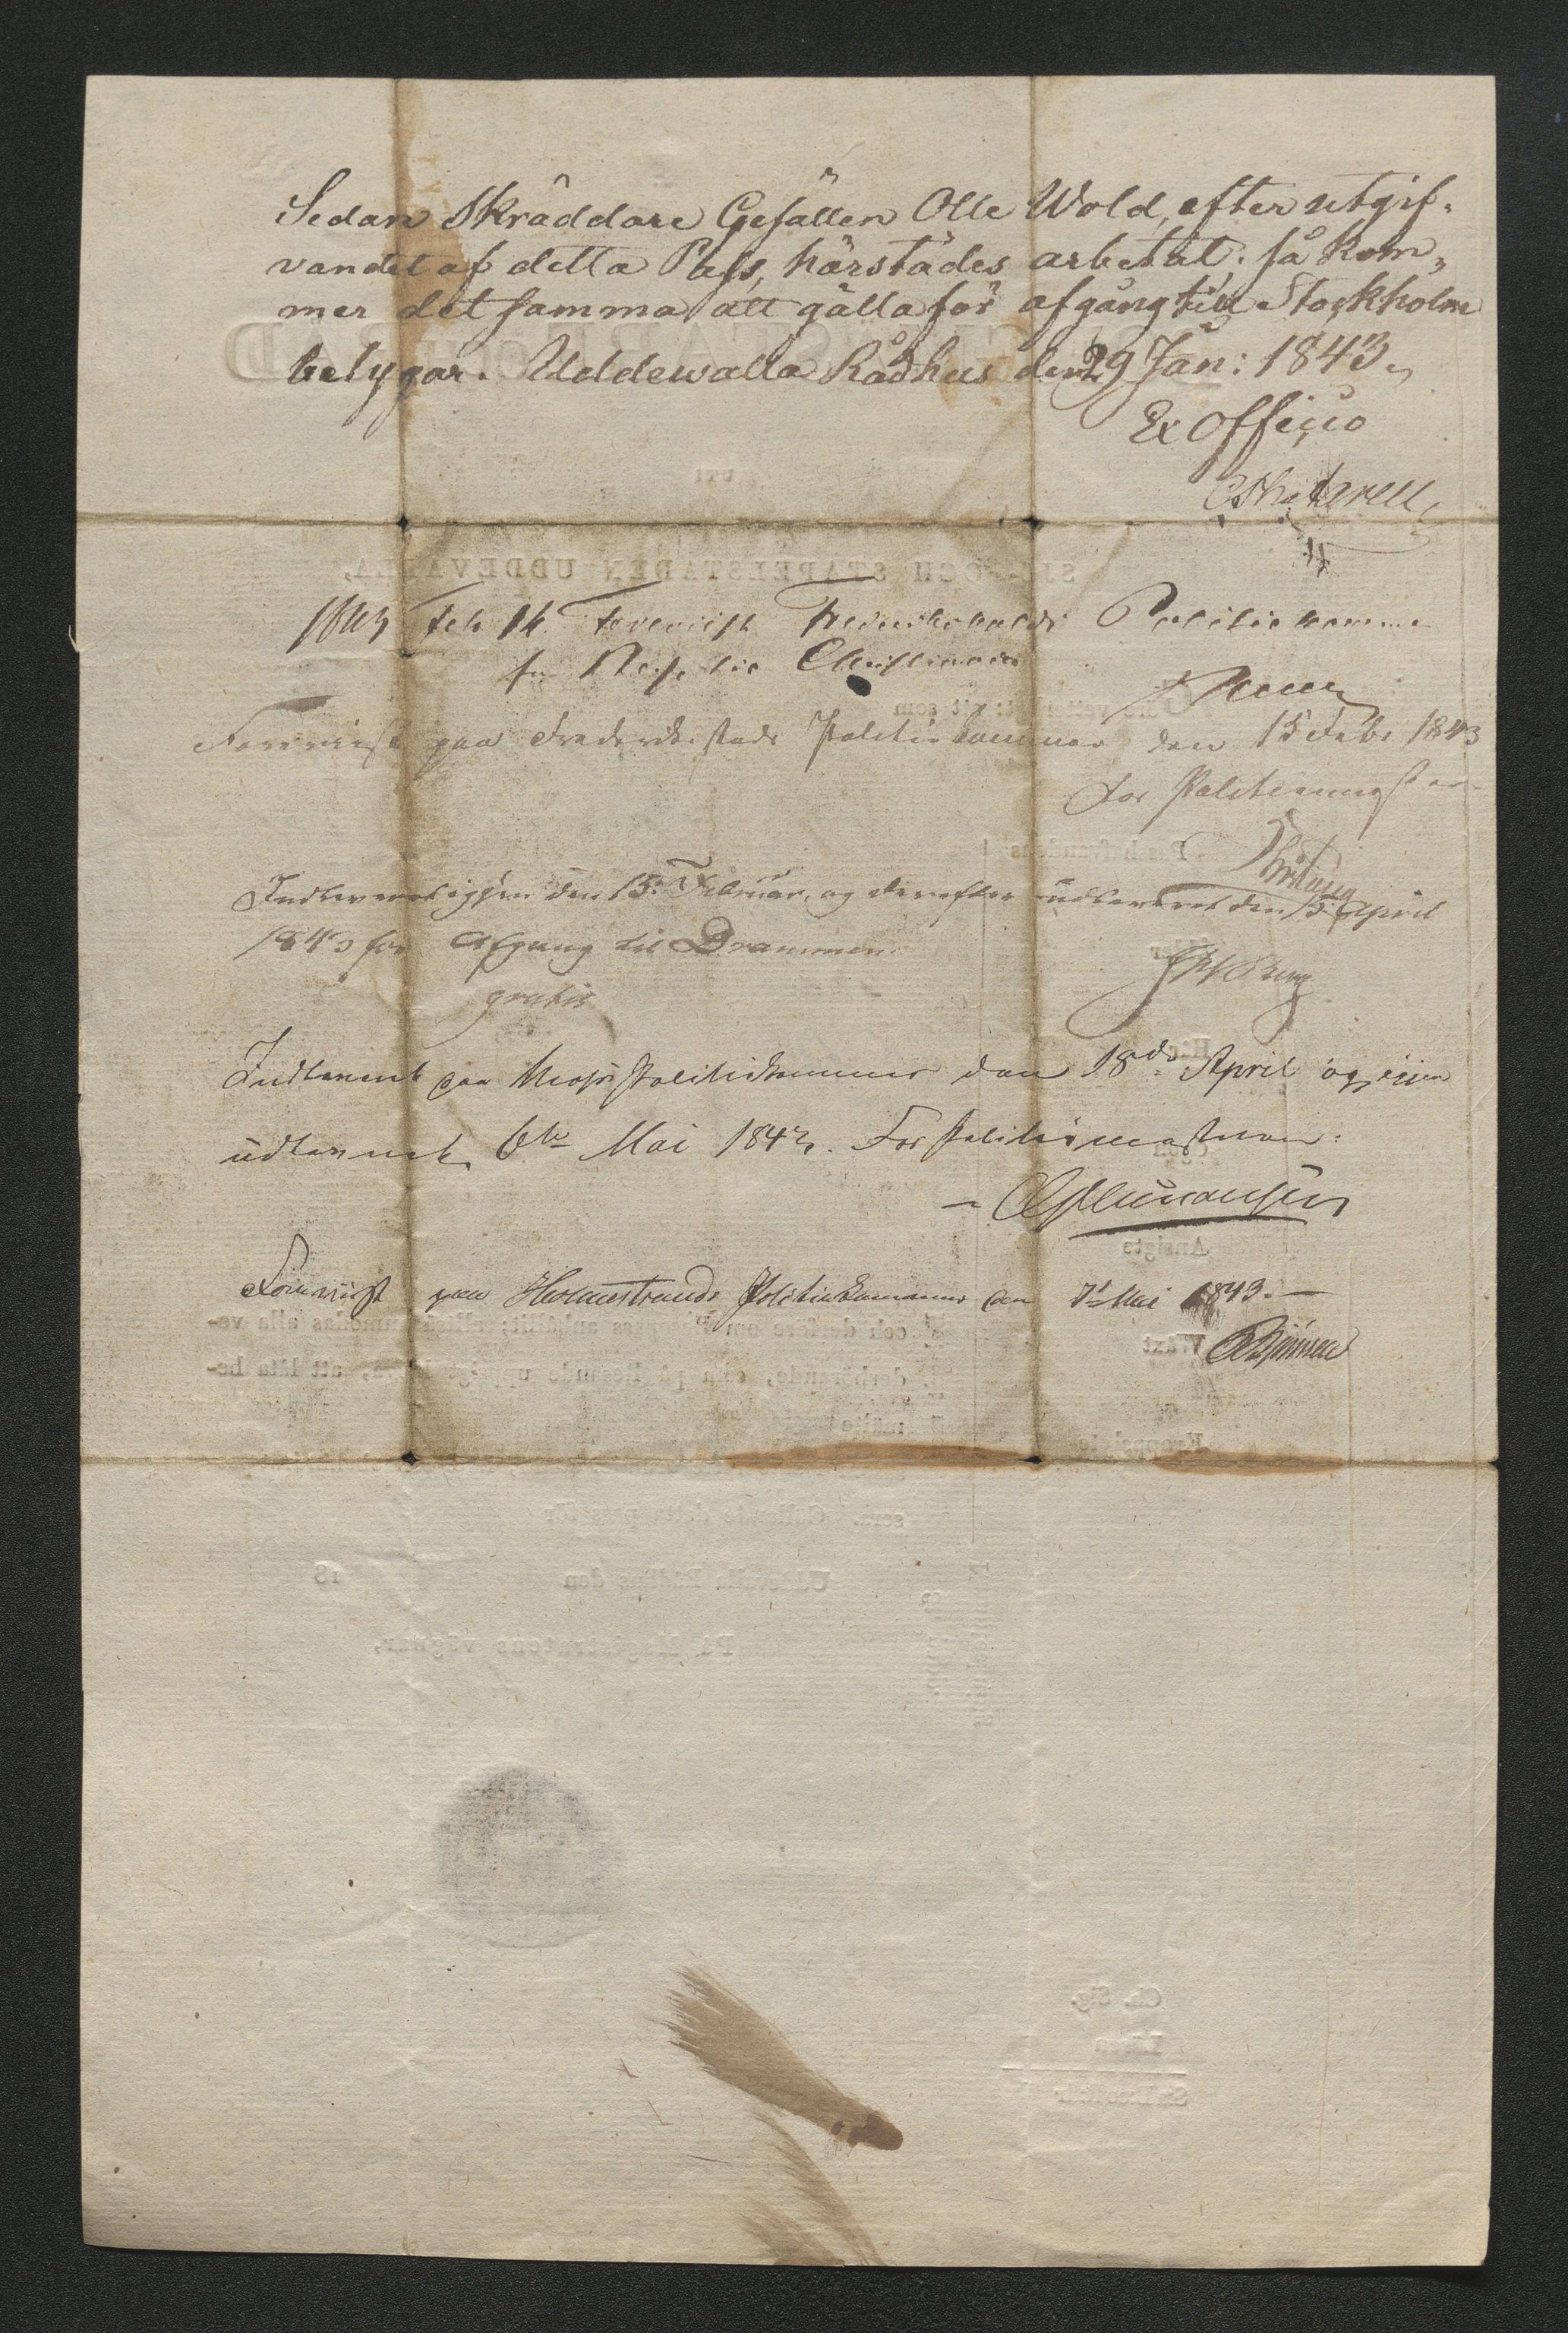 Sedan Skräddare Gesällen Olle Wold, efter utgif-
vandet af detta Pass, härstädes arbetat; så kom-
mer det samma att gälla för afgång till Stockholm
betygar. Uddewalla Rådhus den 29 Jan: 1843.
Ex Officio
1843 Feb 14 Foreviist Fredrikshalds Politiekammer
for Reise til Christiania
Foreviist paa Frederikstads Politiekammer den 15 Febr 1843
For Politiemesteren
Indleveret igjen den 15. Februar, og derefter udleveret den 15 April
1843 for Afgang til Drammen.
gratis
Indleveret paa Moss Politiekammer den 18de April og igjen
udleveret 6te Mai 1843. For Politiemesteren:
Foreviist paa Holmestrands Politiekammer den 7de Mai 1843.—